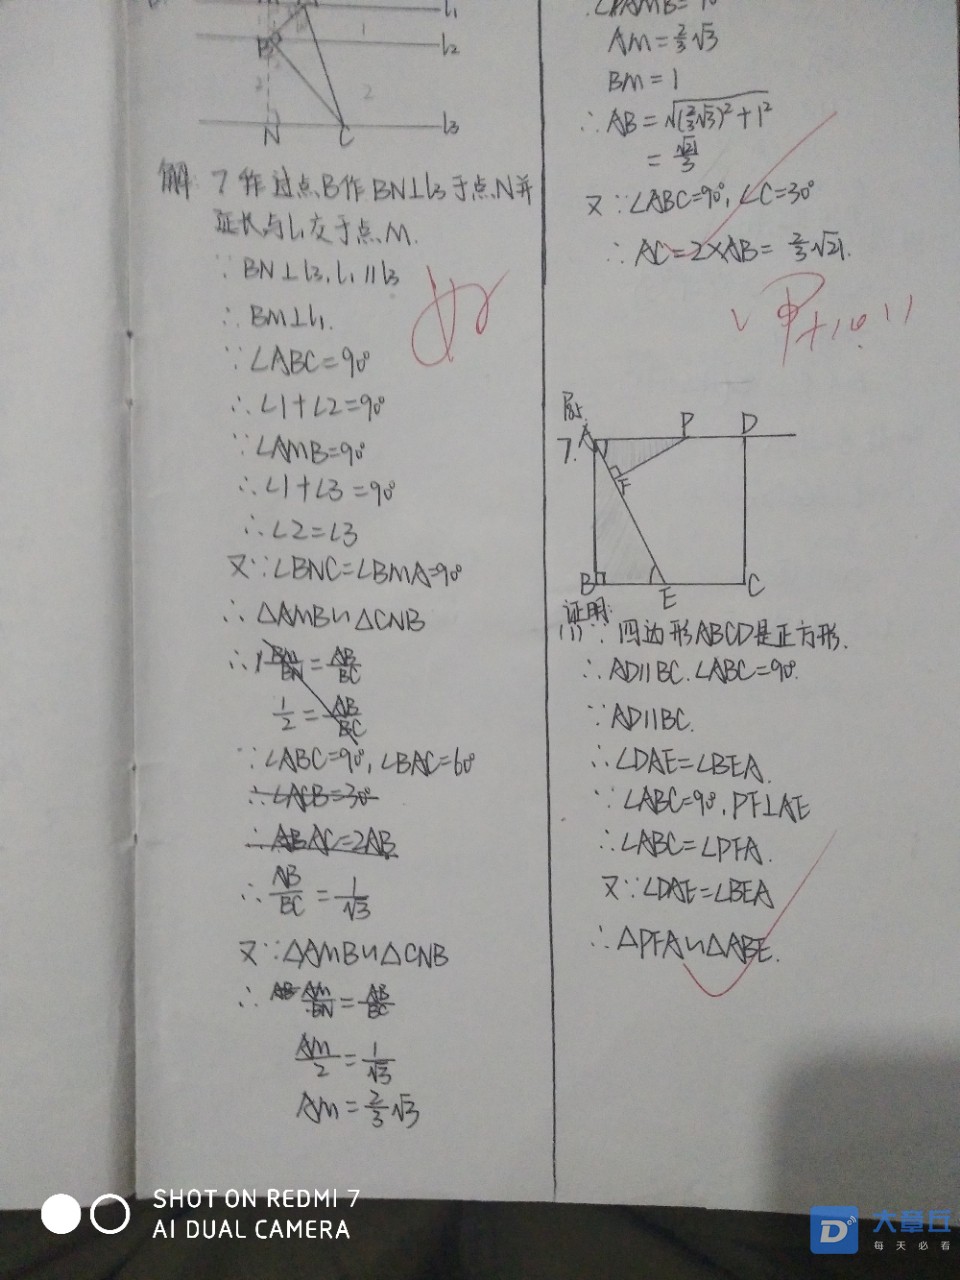 l₁
B
1
l₂
2
2
N
C
l₃
解
作过点B作BN⊥l₃于点N并
延长与l₁交于点M.
∵BN⊥l₃,l₁∥l₃
∴BM⊥l₁.
∵∠ABC=90°
∴∠1+∠2=90°
∵∠AMB=90°
∴∠1+∠3=90°
∴∠2=∠3
又∵∠BNC=∠BMA=90°
∴△AMB∽△CNB
∴BM/BN=AB/BC
1/2=AB/BC
∵∠ABC=90°,∠BAC=60°
∴∠ACB=30°
∴AB AC=2AB
∴AB/BC=1/√3
又∵△AMB∽△CNB
∴AB AM/BN=AB/BC
AM/2=1/√3
AM=2/3√3
AM=2/3√3
BM=1
∴AB=√((2/3√3)²+1²)
=√21/3
又∵∠ABC=90°,∠C=30°
∴AC=2×AB=2/3√21.
好
7.
A
P
D
F
B
E
C
证明:
(1)∵四边形ABCD是正方形.
∴AD∥BC.∠ABC=90°.
∵AD∥BC.
∴∠DAE=∠BEA.
∵∠ABC=90°,PF⊥AE
∴∠ABC=∠PFA.
又∵∠DAE=∠BEA
∴△PFA∽△ABE.
SHOT ON REDMI 7
AI DUAL CAMERA
大章丘
每天必看